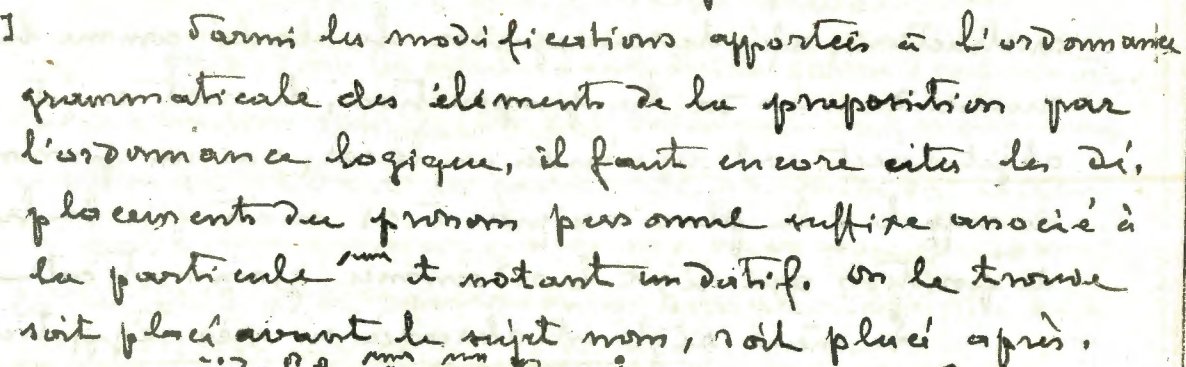 I Parmi les modifications apportées à l'ordonnance
grammaticale des éléments de la proposition par
l'ordonnance logique, il faut encore citer les dé.
placements du pronom personnel suffixe associé à
la particule et notant un datif. on le trouve
soit placé avant le sujet nom, soit placé après.